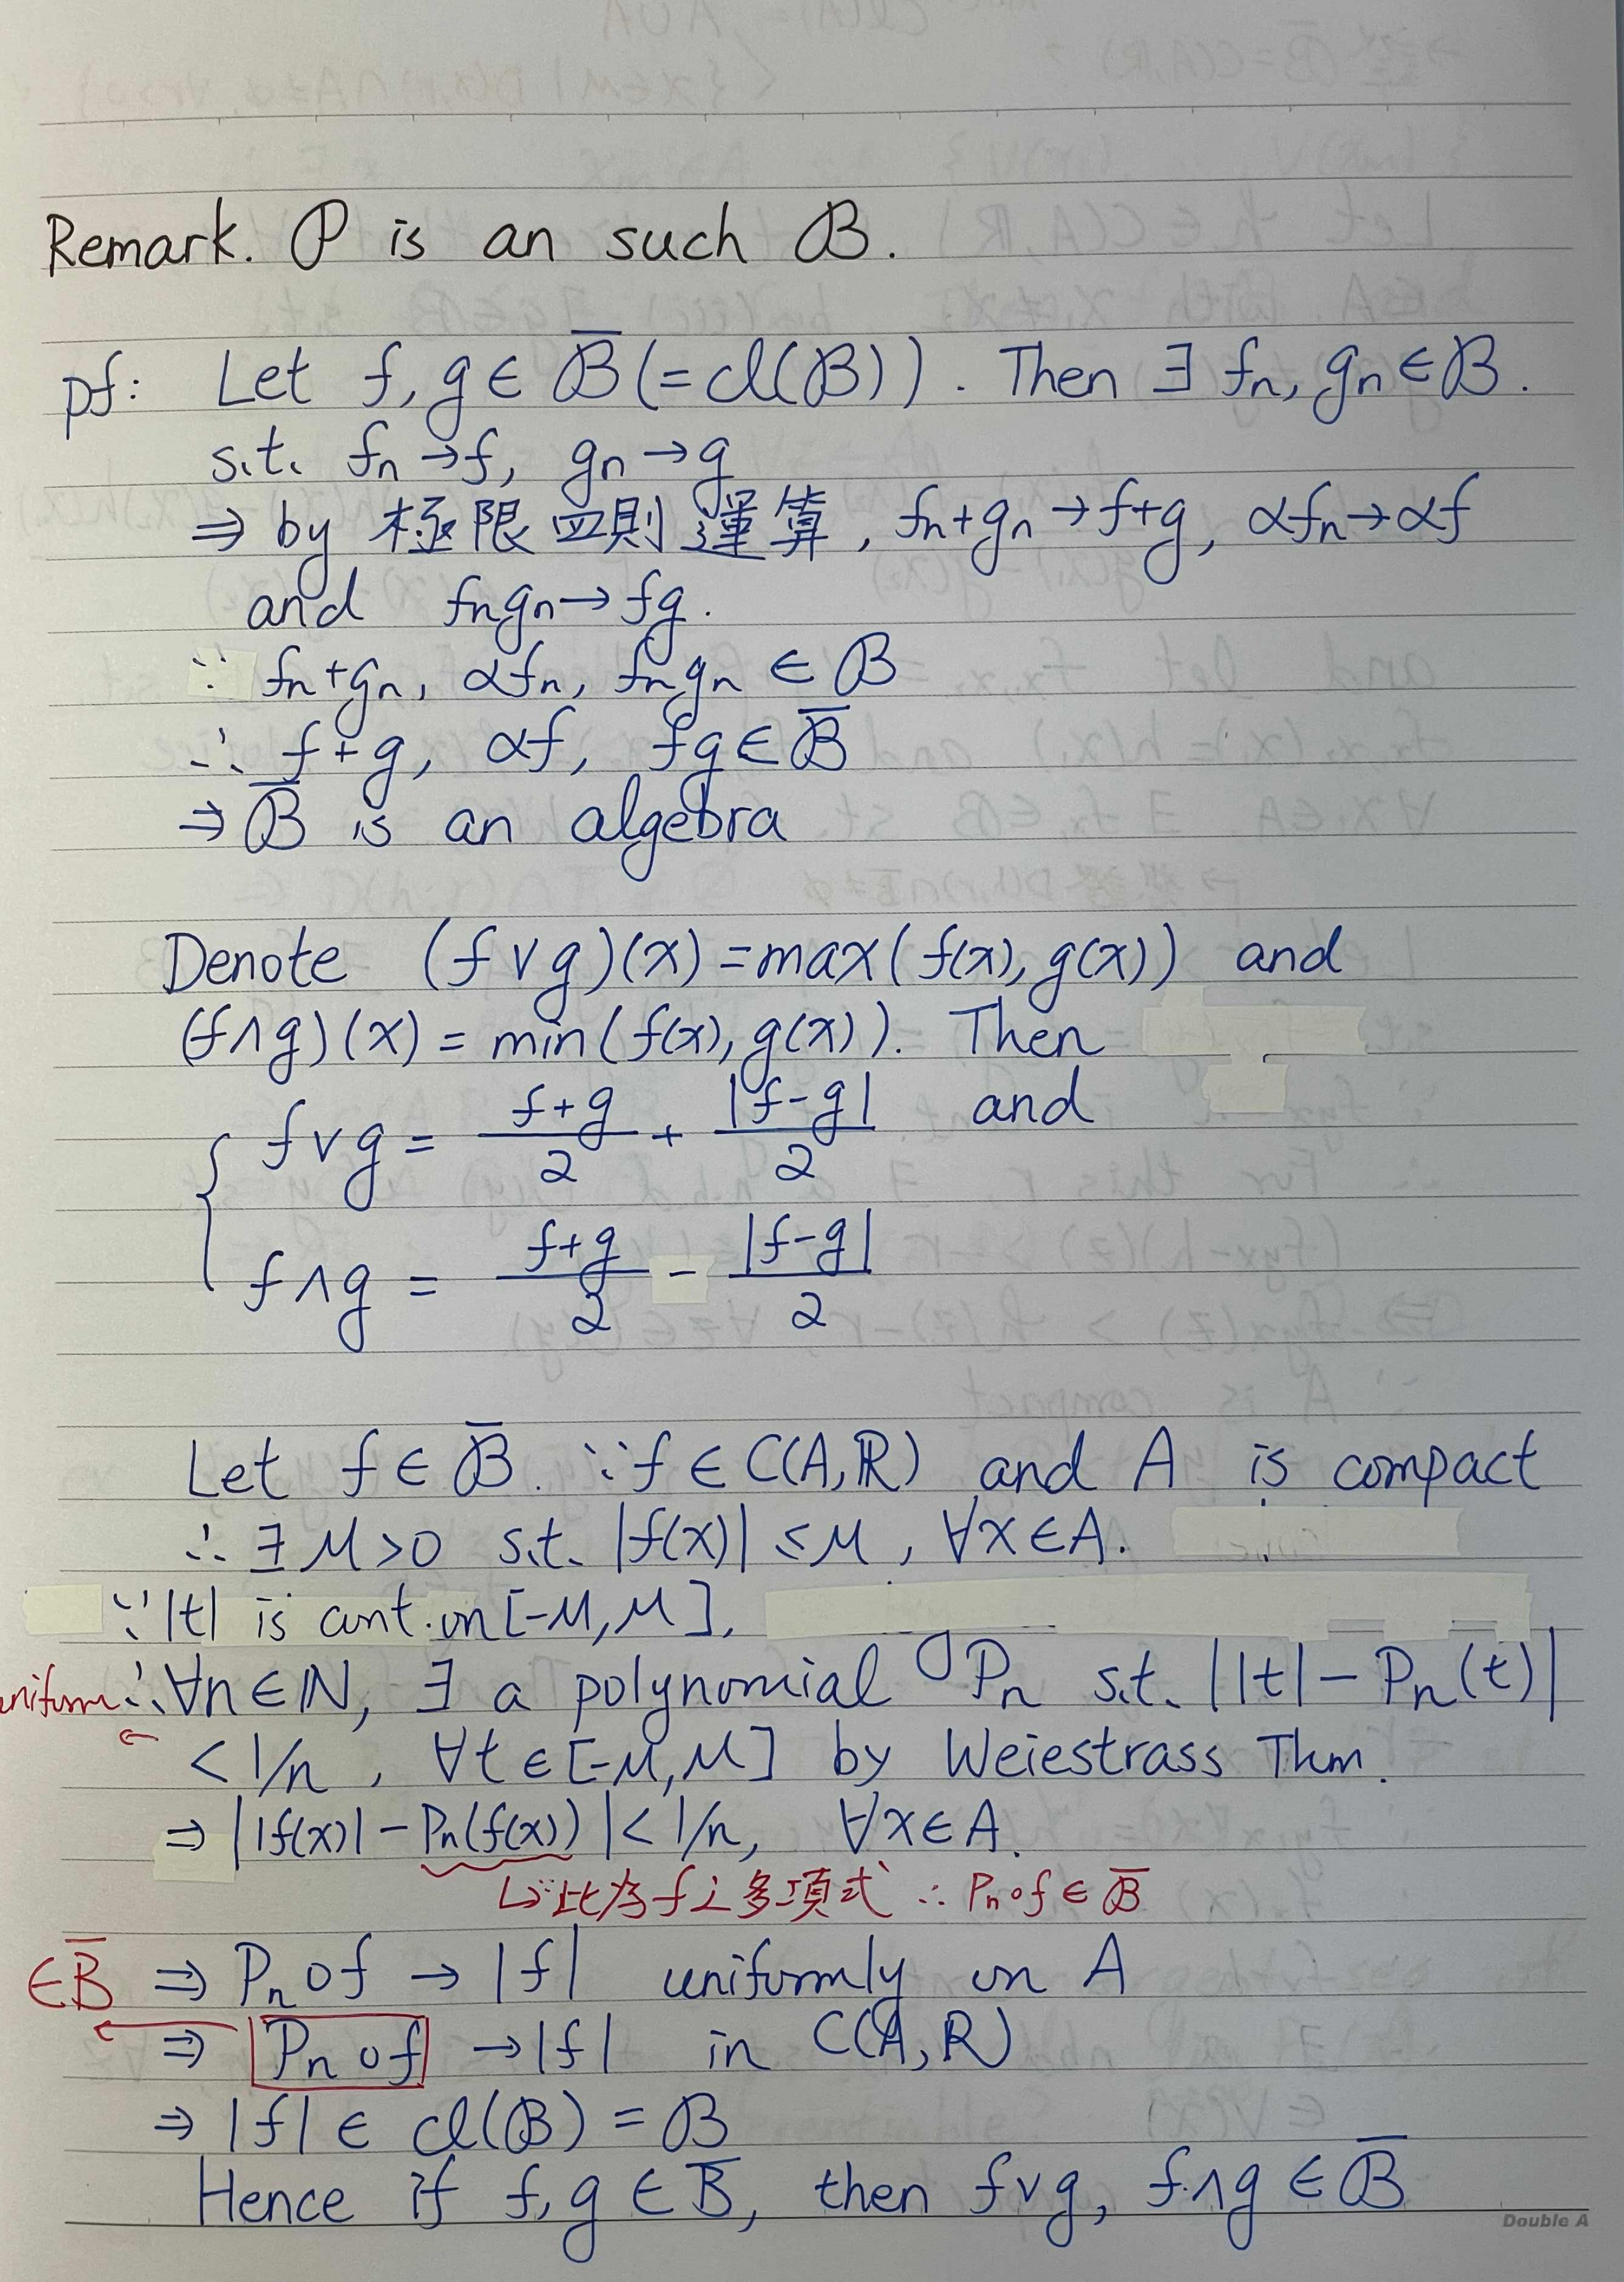 Remark. 𝒫 is an such ℬ.
pf: Let f, g ∈ ℬ̅ (= cl(ℬ)). Then ∃ fn, gn ∈ ℬ.
s.t. fn → f, gn → g
⇒ by 極限四則運算, fn+gn → f+g, αfn → αf
and fngn → fg.
∵ fn+gn, αfn, fngn ∈ ℬ
∴ f+g, αf, fg ∈ ℬ̅
⇒ ℬ̅ is an algebra
Denote (f∨g)(x) = max(f(x), g(x)) and
(f∧g)(x) = min(f(x), g(x)). Then
f∨g = (f+g)/2 + |f-g|/2 and
f∧g = (f+g)/2 - |f-g|/2
Let f ∈ ℬ̅. ∵ f ∈ C(A,ℝ) and A is compact
∴ ∃ M>0 s.t. |f(x)| ≤ M, ∀x∈A.
∵ |t| is cont. on [-M, M],
uniform ∴ ∀n∈ℕ, ∃ a polynomial Pn s.t. ||t| - Pn(t)|
< 1/n, ∀t∈[-M, M] by Weiestrass Thm.
⇒ ||f(x)| - Pn(f(x))| < 1/n, ∀x∈A.
↳ 此為f之多項式 ∴ Pn∘f ∈ ℬ̅
∈ℬ̅ ⇒ Pn∘f → |f| uniformly on A
⇒ Pn∘f → |f| in C(A, ℝ)
⇒ |f| ∈ cl(ℬ) = ℬ̅
Hence if f, g ∈ ℬ̅, then f∨g, f∧g ∈ ℬ̅
Double A